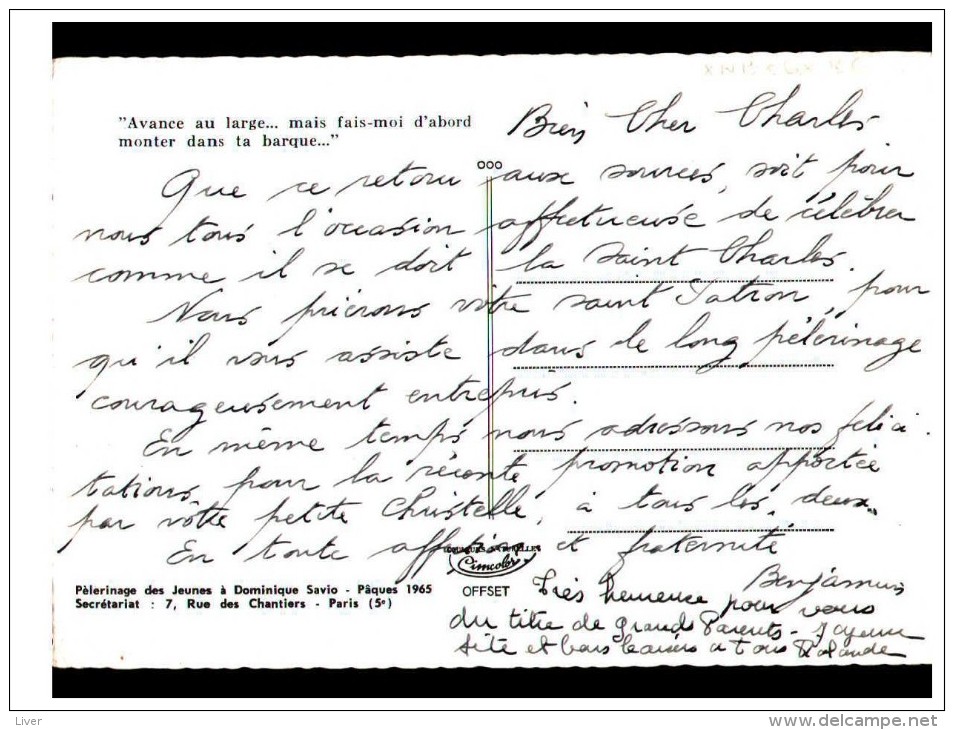 "Avance au large... mais fais-moi d'abord
monter dans ta barque..."
Bien Cher Charles
Que ce retour aux sources, soit pour
nous tous l'occasion affectueuse de célébrer
comme il se doit la Saint Charles.
Nous prierons votre saint Patron, pour
qu'il vous assiste dans le long pélerinage
courageusement entrepris.
En même temps nous adressons nos félici-
tations, pour la récente promotion apportée
par votre petite Christelle, à tous les deux.
En toute affection, et fraternité
Benjamin
COULEURS NATURELLES
Cimcolor
OFFSET
Pèlerinage des Jeunes à Dominique Savio - Pâques 1965
Secrétariat : 7, Rue des Chantiers - Paris (5e)
Très heureuse pour vous
du titre de grands Parents - Joyeuse
fête et bons baisers à tous Rolande
Liver
www.delcampe.net